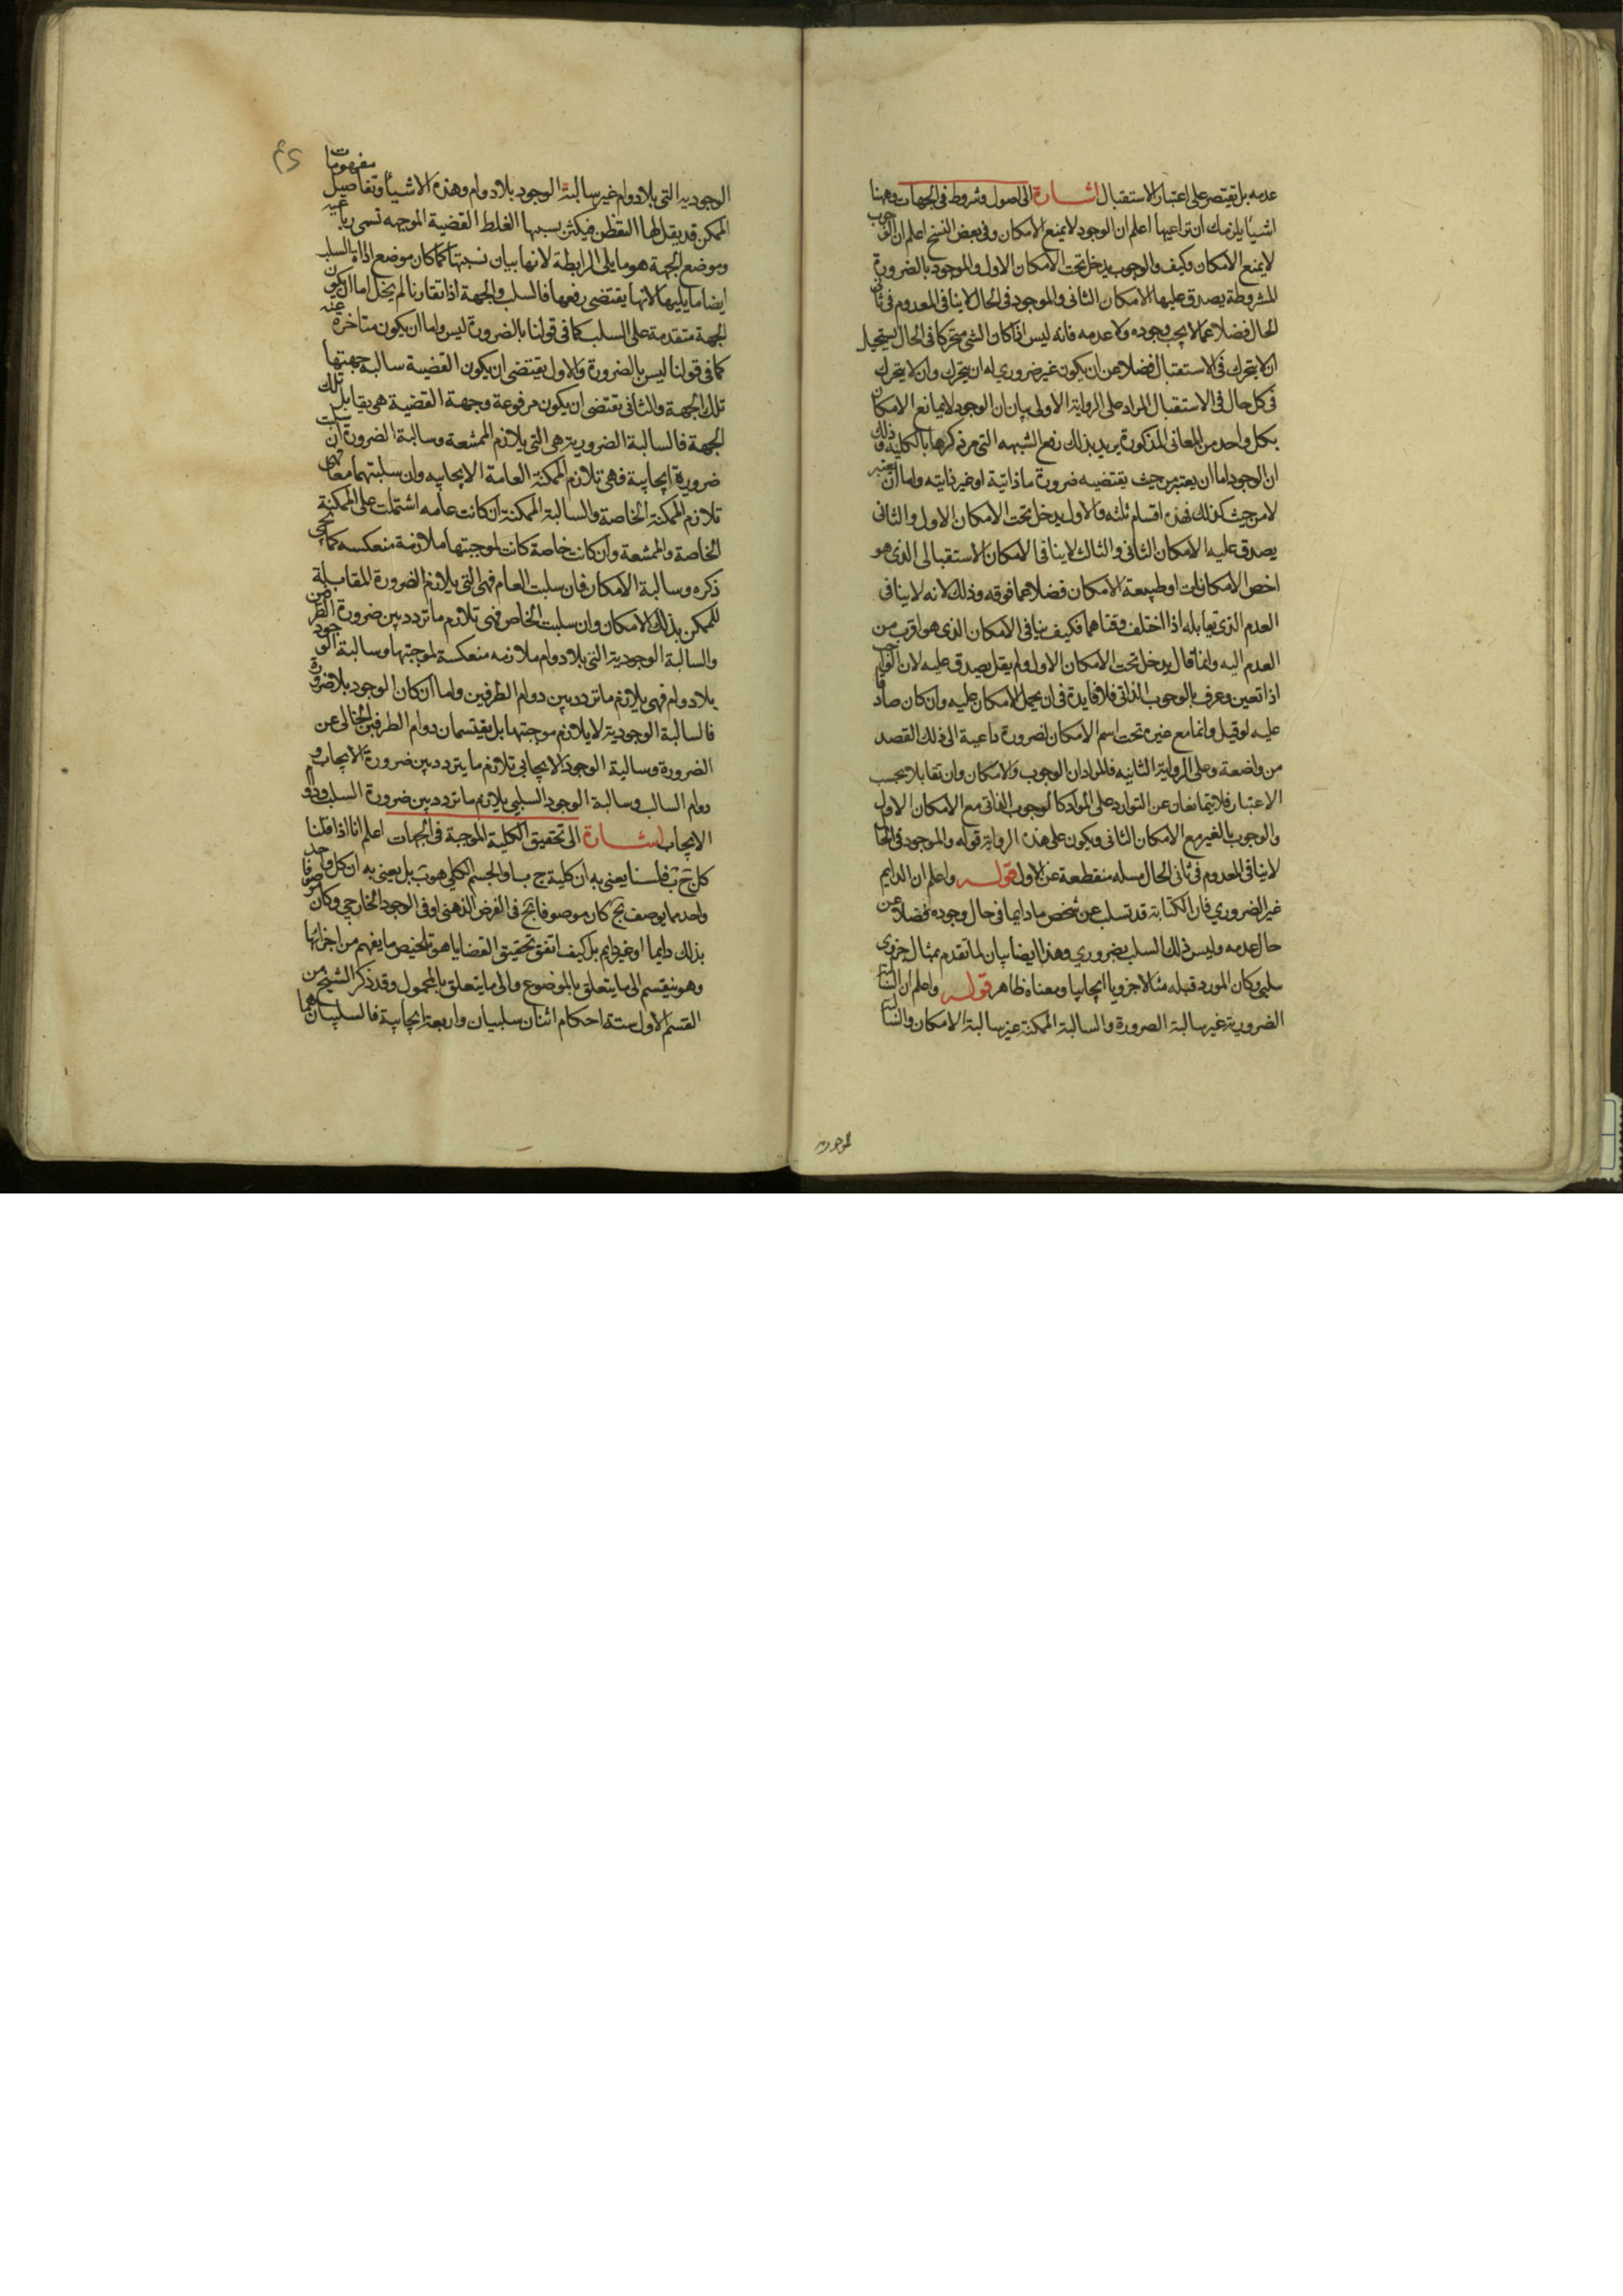 عدمه بل يقتصر على اعتبار الاستقبال اشارة الى اصول وشروط فى الجهات وههنا
اشيا يلزمك ان تراعيها اعلم ان الوجود لا يمنع الامكان وفى بعض النسخ اعلم ان الوجوب
لا يمنع الامكان وكيف والوجوب يدخل تحت الامكان الاول والموجود بالضرورة
المشروطة يصدق عليها الامكان الثانى والموجود فى الحال لا ينافى المعدوم فى ثانى
الحال فضلا عما لا يجب وجوده ولا عدمه فانه ليس اذا كان الشى متحركا فى الحال يستحيل
ان لا يتحرك فى الاستقبال فضلا عن ان يكون غير ضرورى له ان يتحرك وان لا يتحرك
فى كل حال فى الاستقبال المراد على الرواية الاولى بيان ان الوجود لا يمانع الامكان
بكل واحد من المعانى المذكورة يريد بذلك رفع الشبهه التى مر ذكرها بالكلية وذلك
ان الوجود اما ان يعتبر من حيث يقتضيه ضرورة ما ذاتية او غير ذاتيته واما ان يعتبر
لا من حيث كذلك فهذه اقسام ثلثه والاول يدخل تحت الامكان الاول والثانى
يصدق عليه الامكان الثانى والثالث لا ينافى الامكان الاستقبالى الذى هو
اخص الامكانات او طبيعة الامكان فضلا عما فوقه وذلك لانه لا ينافى
العدم الذى يقابله اذا اختلف وقتاهما فكيف ينافى الامكان الذى هو اقرب من
العدم اليه وانما قال يدخل تحت الامكان الاول ولم يقل يصدق عليه لان الواجب
اذا تعين وعرف بالوجوب الذاتى فلا فايدة فى ان يحمل الامكان عليه وان كان صادقا
عليه لو قيل وانما مع غيره تحت اسم الامكان لضرورة داعية الى ذلك القصد
من واضعة وعلى الرواية الثانيه فالمراد ان الوجوب والامكان وان تقابلا بحسب
الاعتبار فلا يتمانعان عن التوارد على المواد كالوجوب الذاتى مع الامكان الاول
والوجوب بالغير مع الامكان الثانى ويكون على هذه الرواية قوله والموجود فى الحال
لا ينافى المعدوم فى ثانى الحال مسله منقطعة عن الاول قوله واعلم ان الدايم
غير الضرورى فان الكتابة قد تسلب عن شخص ما دايما فى حال وجوده فضلا عن
حال عدمه وليس ذلك السلب بضرورى وهذا ايضا بيان لما تقدم بمثال جزوى
سلبى وكان المورد قبله مثالا جزويا ايجابيا ومعناه ظاهر قوله واعلم ان السالبة
الضرورية غير سالبة الضرورة والسالبة الممكنة غير سالبة الامكان والسالبة
الوجوديه التى بلا دوام غير سالبة الوجود بلا دوام وهذه الاشياء وتفاصيل مفهومات
الممكن قد يقل لها التفطن فيكثر بسببها الغلط القضية الموجهه تسمى رباعية
وموضع الجهة هو ما يلى الرابطة لانها بيان نسبتها كما كان موضع اداة السلب
ايضا ما يليها لانها يقتضى رفعها فالسلب والجهة اذا تقارنا لم يخل اما ان يكون
الجهة متقدمة على السلب كما فى قولنا بالضرورة ليس واما ان يكون متاخرة عنه
كما فى قولنا ليس بالضرورة والاول يقتضى ان يكون القضية سالبة جهتها
تلك الجهة والثانى يقتضى ان يكون مرفوعة وجهة القضية هى يقابل تلك
الجهة فالسالبة الضرورية هى التى يلازم الممتنعة وسالبة الضرورة ان سلبت
ضرورة ايجابية فهى تلازم الممكنة العامة الايجابيه وان سلبتهما معا فهى
تلازم الممكنة الخاصة والسالبة الممكنة ان كانت عامه اشتملت على الممكنة
الخاصة والممتنعة وان كانت خاصة كانت لموجبتها ملازمة منعكسه كما يجى
ذكره وسالبة الامكان فان سلبت العام فهى التى يلازم الضرورة المقابلة
للممكن بذلك الامكان وان سلبت الخاص فهى تلازم ما تردد بين ضرورة الطرفين
والسالبة الوجودية التى بلا دوام ملازمه منعكسة لموجبتها وسالبة الوجود
بلا دوام فهى يلازم ما تردد بين دوام الطرفين واما ان كان الوجود بلا ضرورة
فالسالبة الوجودية لا يلازم موجبتها بل يقتسمان دوام الطرفين الخالى عن
الضرورة وسالبة الوجود الايجابى تلازم ما يتردد بين ضرورة الايجاب و
دوام السالب وسالبة الوجود السلبى يلازم ما تردد بين ضرورة السلب ودوام
الايجاب اشارة الى تحقيق الكلية الموجبة فى الجهات اعلم انا اذا قلنا
كل ج ب فلسنا يعنى به ان كلية ج ب او الجسم الكلى هو ب بل يعنى به ان كل واحد
واحد مما يوصف بج كان موصوفا بج فى الفرض الذهنى او فى الوجود الخارجى وكان موصوفا
بذلك دايما او غير دايم بل كيف اتفق تحقيق القضايا هو تلخيص ما يفهم من اجزائها
وهو ينقسم الى ما يتعلق بالموضوع والى ما يتعلق بالمحمول وقد ذكر الشيخ من
القسم الاول ستة احكام اثنان سلبيان واربعة ايجابية فالسلبيان هما